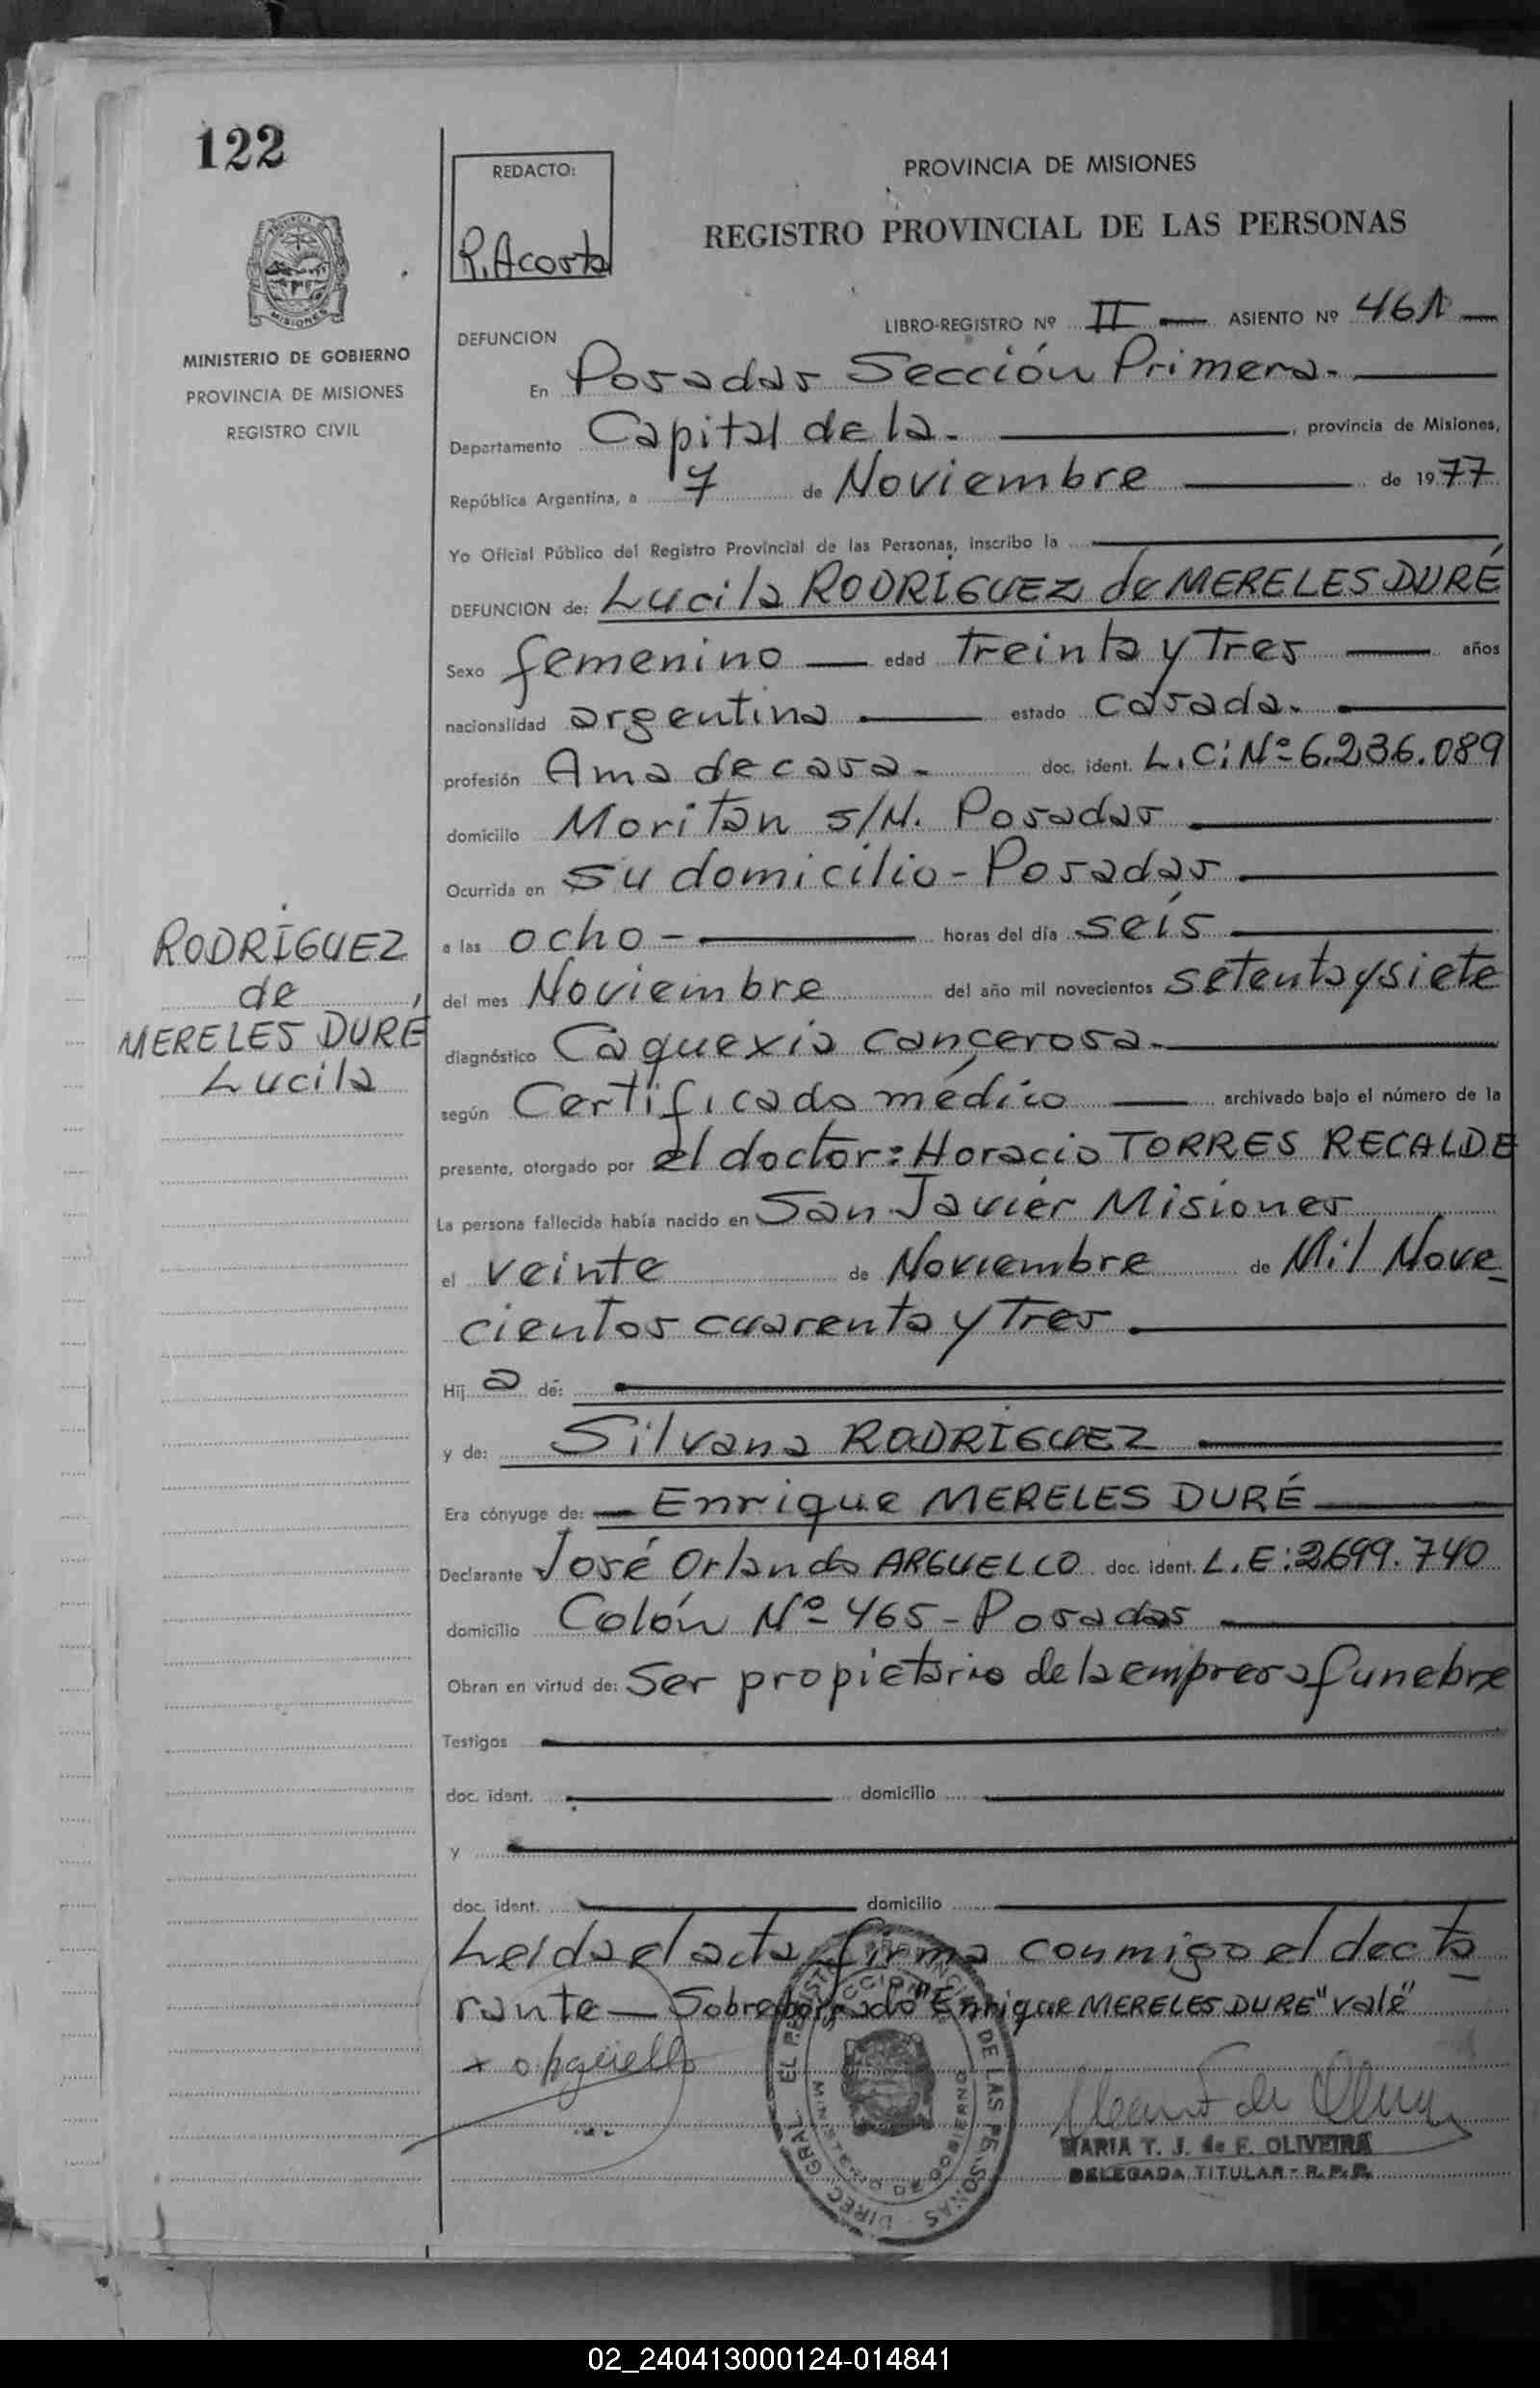 122
REDACTO:
R. Acosta
PROVINCIA DE MISIONES
REGISTRO PROVINCIAL DE LAS PERSONAS
MISIONES
MINISTERIO DE GOBIERNO
PROVINCIA DE MISIONES
REGISTRO CIVIL
LIBRO-REGISTRO Nº II — ASIENTO Nº 461 —
DEFUNCION
En Posadas Sección Primera.
Departamento Capital de la. , provincia de Misiones,
República Argentina, a 7 de Noviembre de 1977
Yo Oficial Público del Registro Provincial de las Personas, inscribo la
DEFUNCION de: Lucila RODRÍGUEZ de MERELES DURÉ
Sexo femenino — edad Treinta y Tres — años
nacionalidad argentina — estado casada.
profesión Ama de casa. doc. ident. L.C: Nº 6.236.089
domicilio Moritan s/N. Posadas
Ocurrida en su domicilio - Posadas
a las ocho - horas del día seis
del mes Noviembre del año mil novecientos setenta y siete
diagnóstico Caquexia cancerosa.
según Certificado médico — archivado bajo el número de la
presente, otorgado por el doctor: Horacio TORRES RECALDE
La persona fallecida había nacido en San Javier Misiones
el veinte de Noviembre de Mil Nove
cientos cuarenta y Tres
Hij a de:
y de: Silvana RODRÍGUEZ
Era cónyuge de: — Enrique MERELES DURÉ
Declarante José Orlando ARGUELLO doc. ident. L.E: 2.699.740
domicilio Colón Nº 465 - Posadas
Obran en virtud de: Ser propietario de la empresa funebre
Testigos
doc. ident. domicilio
y
doc. ident. domicilio
Leida el acta firma conmigo el decla
rante — Sobreborrado "Enrique MERELES DURE" vale"
RODRÍGUEZ
de
MERELES DURÉ
Lucila
x o. Argüello
DIREC. GRAL. EL REGISTRO PROVINCIAL DE LAS PERSONAS
MINISTERIO DE GOBIERNO
MARIA T. J. de F. OLIVEIRA
DELEGADA TITULAR - R.P.P.
02_240413000124-014841